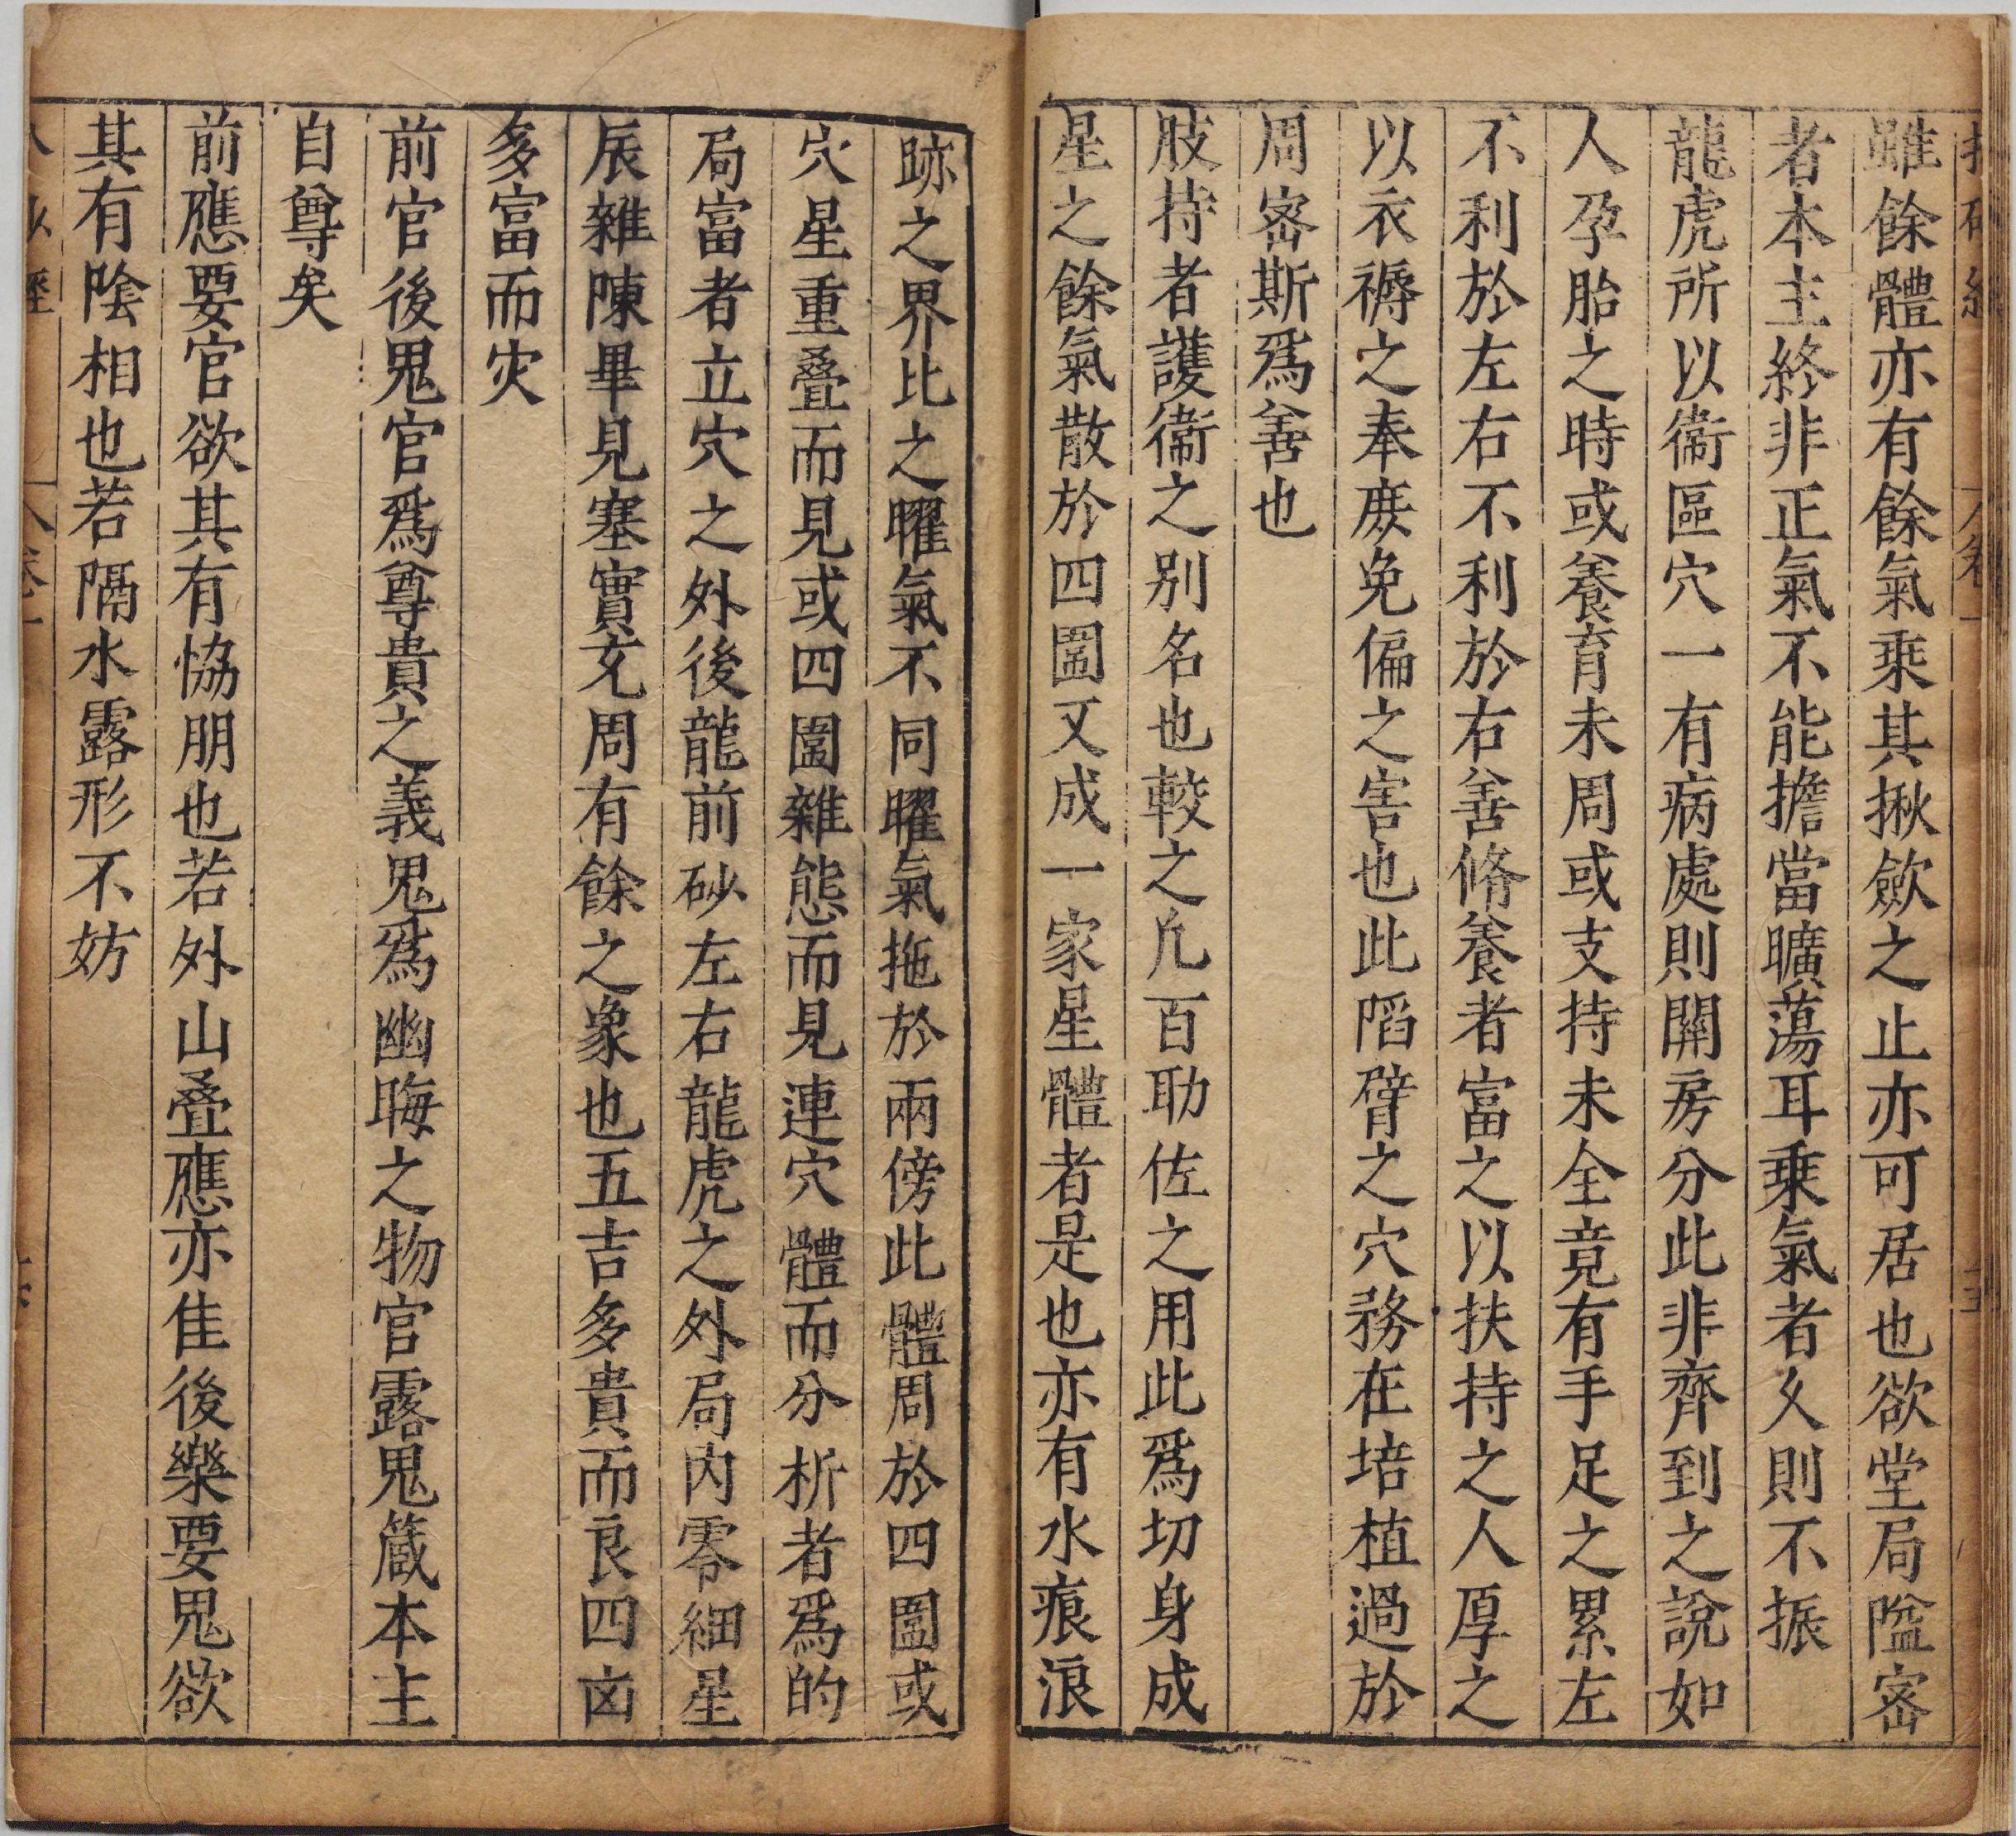 雖餘體亦有餘氣乘其揪歛之止亦可居也欲堂局隘密
者本主終非正氣不能擔當曠蕩耳乘氣者久則不振
龍虎所以衞區穴一有病處則關房分此非齊到之說如
人孕胎之時或養育未周或支持未全竟有手足之累左
不利於左右不利於右善脩養者富之以扶持之人厚之
以衣褥之奉庶免偏之害也此䧟臂之穴務在培植過於
周密斯爲善也
肢持者護衞之别名也較之凢百助佐之用此爲切身成
星之餘氣散於四圍又成一家星體者是也亦有水痕浪
跡之界比之曜氣不同曜氣拖於兩傍此體周於四圍或
穴星重叠而見或四圍雜態而見連穴體而分析者爲的
局富者立穴之外後龍前砂左右龍虎之外局内零細星
辰雜陳畢見塞實充周有餘之象也五吉多貴而良四凶
多富而灾
前官後鬼官爲尊貴之義鬼爲幽晦之物官露鬼藏本主
自尊矣
前應要官欲其有恊朋也若外山叠應亦佳後樂要鬼欲
其有陰相也若隔水露形不妨